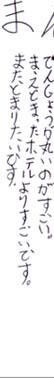 まん
てんじょうが丸いのがすごい。
まえとまったホテルよりすごいです。
またとまりたいひす。